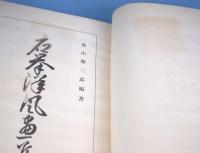 外山卯三郎編著
石峯洋風画